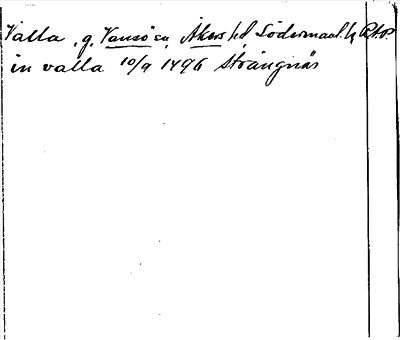 Valla, g. Vansö sn, Åkers hd Södermanl. h
in valla 10/9 1496 Strängnäs